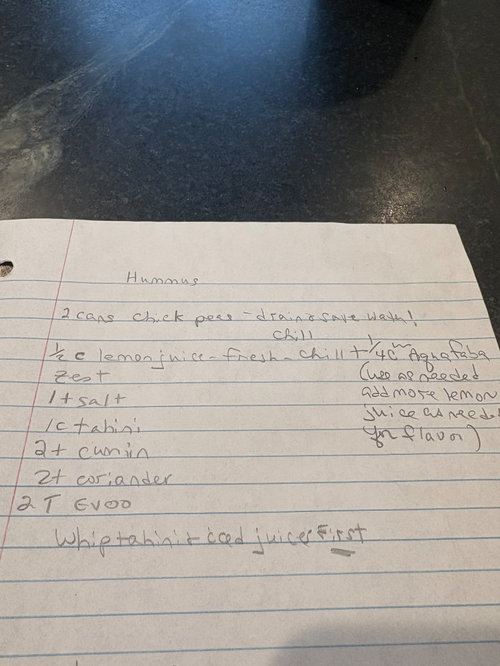 Hummus
2 cans chick peas - drain & save water!
chill
1/2 c lemon juice - fresh - chill + 1/4 c Aquafaba
zest (use as needed
1 t salt add more lemon
1 c tahini juice as needed
2 t cumin for flavor)
2 t coriander
2 T EVOO
Whip tahini & iced juices First